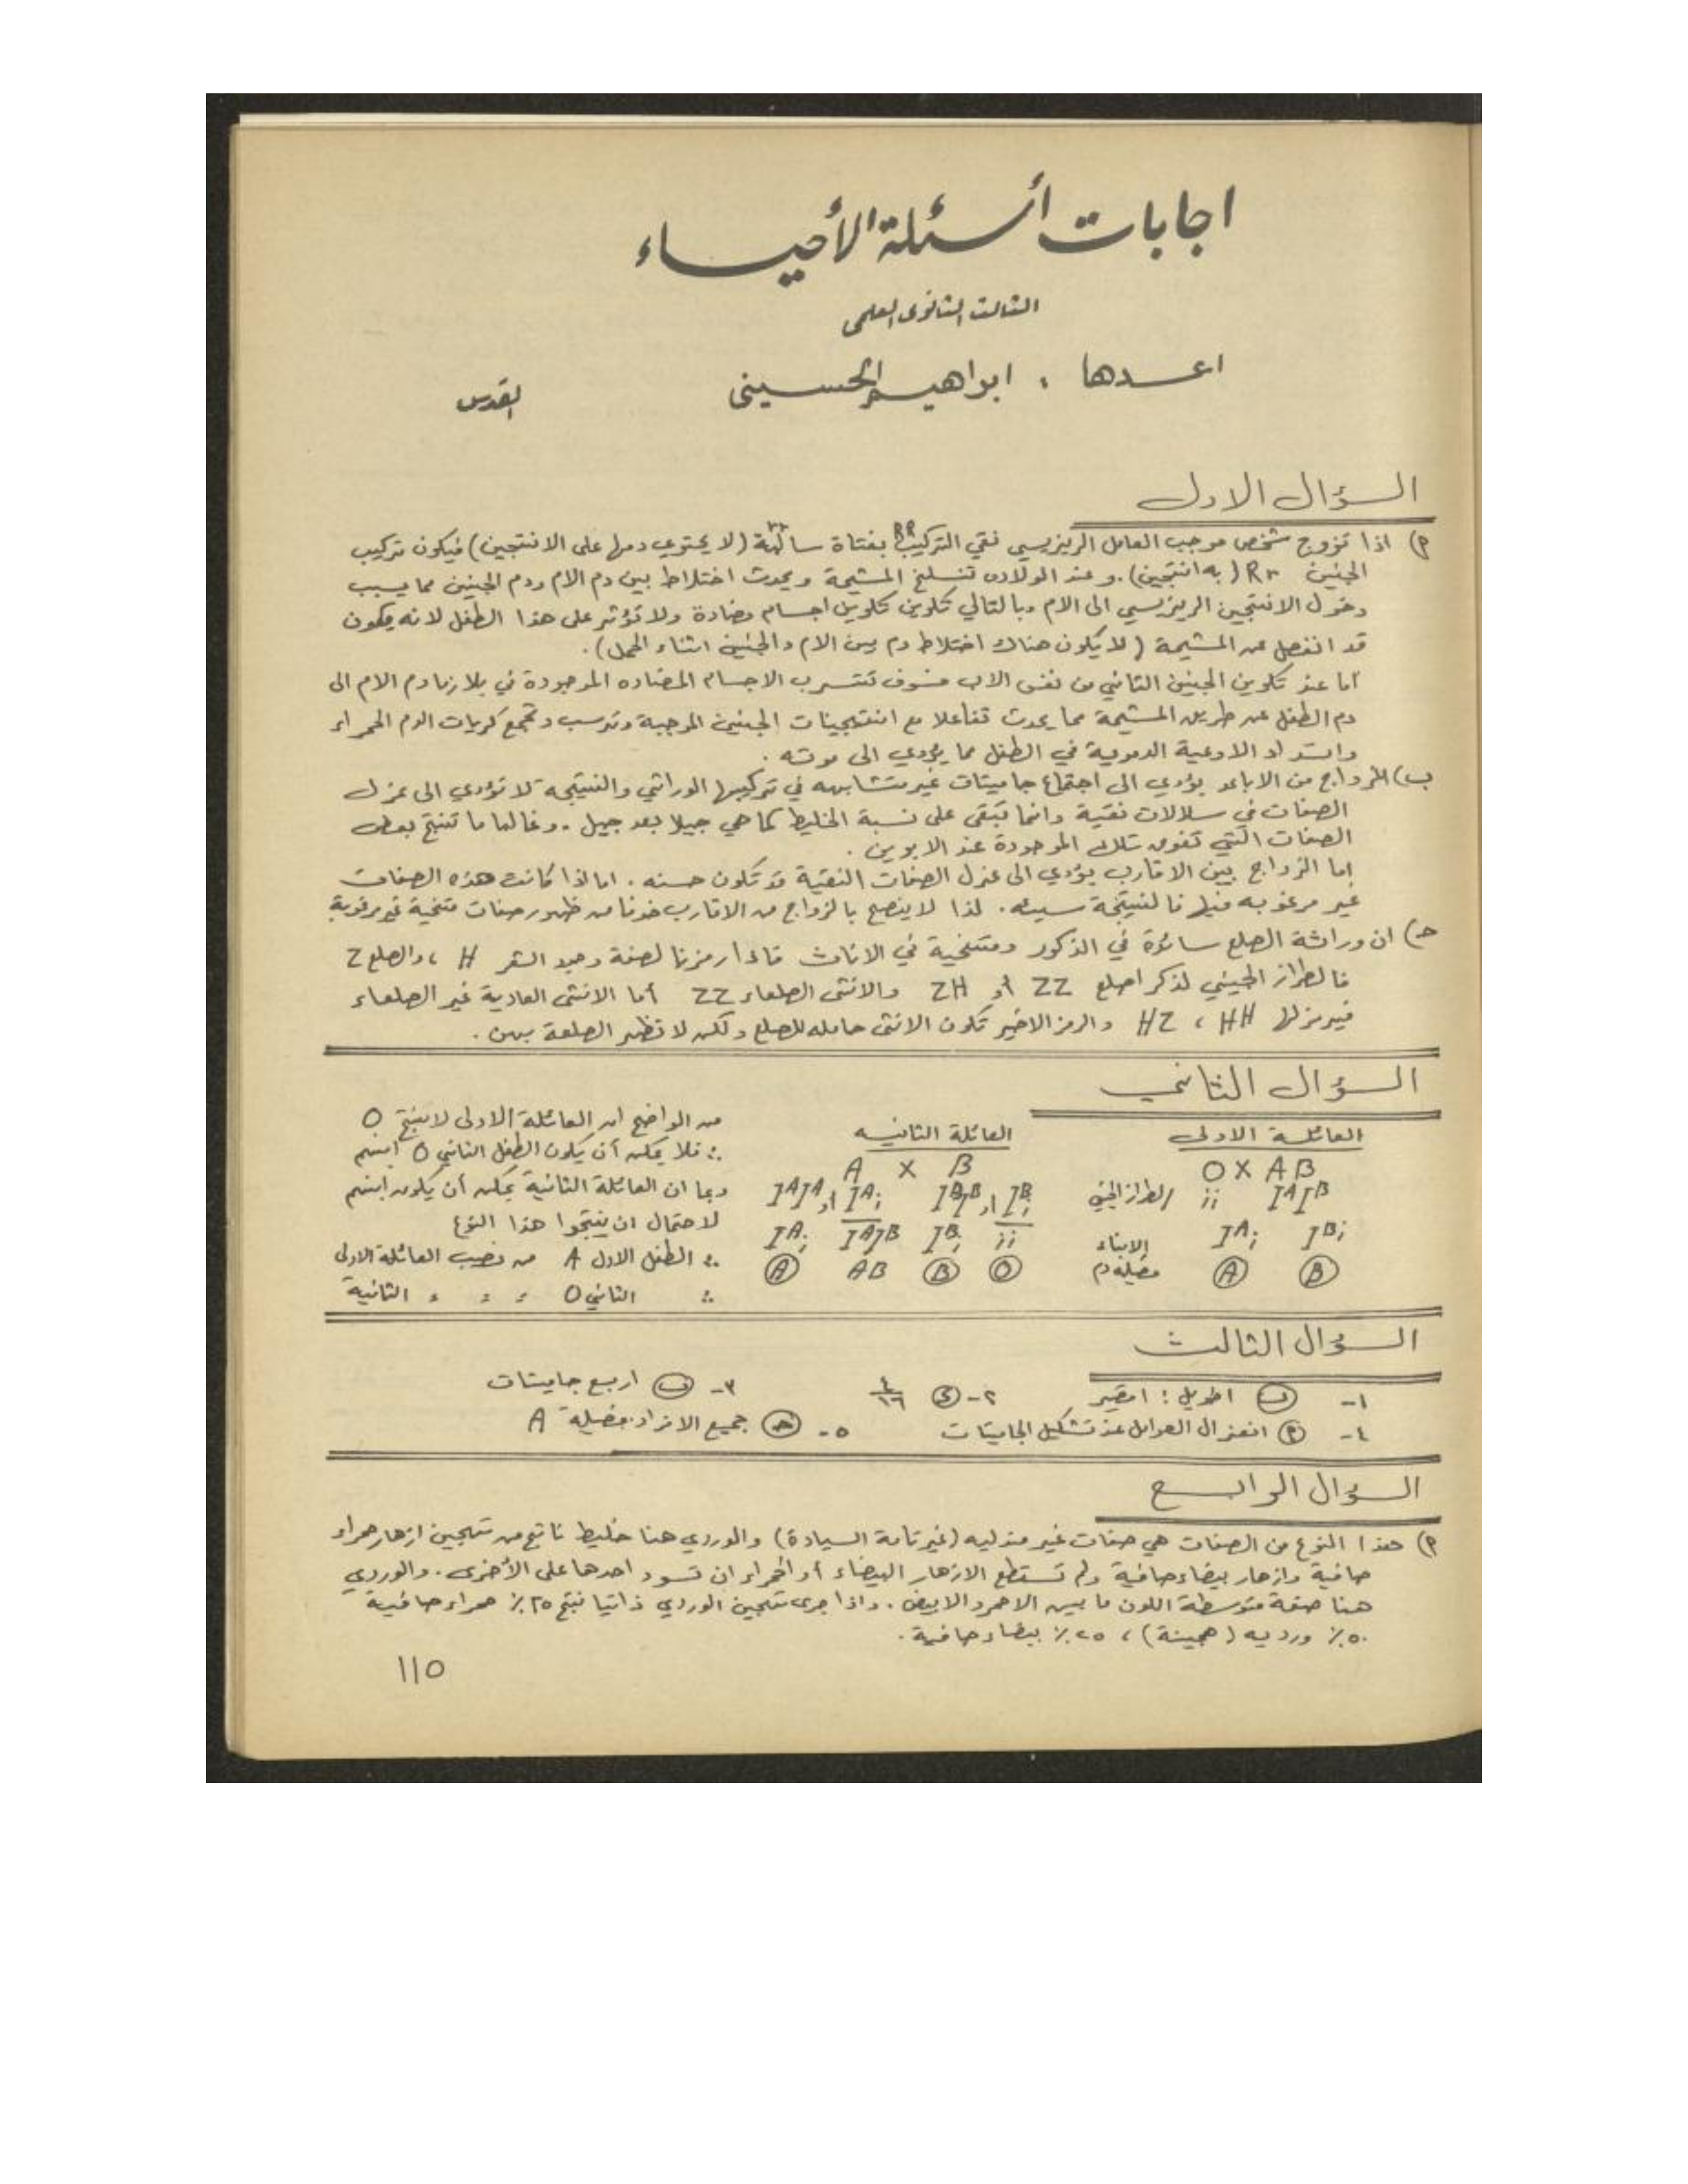 اجابات أسئلة الأحياء
الثالث الثانوي العلمي
اعدها : ابراهيم الحسيني القدس
السؤال الاول
أ) اذا تزوج شخص موجب العامل الريزيسي نقي التركيب RR بفتاة سالبة rr (لا يحتوي دمها على الانتجين) فيكون تركيب
الجنين Rr (به انتجين). وعند الولاده تنسلخ المشيمة ويحدث اختلاط بين دم الام ودم الجنين مما يسبب
دخول الانتجين الريزيسي الى الام وبالتالي تكوين تكوين اجسام مضادة ولا تؤثر على هذا الطفل لانه يكون
قد انفصل عن المشيمة (لا يكون هناك اختلاط دم بين الام والجنين اثناء الحمل).
أما عند تكوين الجنين الثاني من نفس الاب فسوف تتسرب الاجسام المضاده الموجودة في بلازما دم الام الى
دم الطفل عن طريق المشيمة مما يحدث تفاعلا مع انتيجينات الجنين الموجبة وترسب وتجمع كريات الدم الحمراء
وانسداد الاوعية الدموية في الطفل مما يؤدي الى موته .
ب) الزواج من الاباعد يؤدي الى اجتماع جاميتات غير متشابهه في تركيبها الوراثي والنتيجه لا تؤدي الى عزل
الصفات في سلالات نقية وانما تبقى على نسبة الخليط كما هي جيلا بعد جيل .. وغالبا ما تنتج بعض
الصفات التي تفوق تلك الموجودة عند الابوين .
إما الزواج بين الاقارب يؤدي الى عزل الصفات النقية قد تكون حسنه . اما اذا كانت هذه الصفات
غير مرغوبه فيها فالنتيجة سيئه . لذا لا ينصح بالزواج من الاقارب خوفا من ظهور صفات متنحية غير مرغوبة
ج) ان وراثة الصلع سائدة في الذكور ومتنحية في الاناث فاذا رمزنا لصفة وجود الشعر H ، والصلع Z
فالطراز الجيني لذكر اصلع ZZ أو ZH والانثى الصلعاء ZZ أما الانثى العادية غير الصلعاء
فيرمز لها HH ، HZ والرمز الاخير تكون الانثى حامله للصلع ولكن لا تظهر الصلعة بهن .
السؤال الثاني
العائلة الاولى
O X AB
الطراز الجيني ii IAIB
الابناء IAi IBi
فصيلة دم A B
العائلة الثانيه
A X B
IAIA او IAi IBIB او IBi
IAi IAIB IBi ii
A AB B O
من الواضح ان العائلة الاولى لا تنتج O
∴ فلا يمكن أن يكون الطفل الثاني O ابنهم
وبما ان العائلة الثانية يمكن أن يكون ابنهم
لاحتمال ان ينتجوا هذا النوع
∴ الطفل الاول A من نصيب العائلة الاولى
∴ الثاني O = = = الثانية
السؤال الثالث
١- (ب) ١طويل : ١قصير ٢- (د) ٤/١٦ ٣- (ب) اربع جاميتات
٤- (أ) انعزال العوامل عند تشكيل الجاميتات ٥- (ج) جميع الافراد فصيلة A
السؤال الرابع
أ) هذا النوع من الصفات هي صفات غير مندليه (غير تامة السيادة) والوردي هنا خليط ناتج من تهجين ازهار حمراء
صافية وازهار بيضاء صافية ولم تستطع الازهار البيضاء أو الحمراء ان تسود احدها على الأخرى . والوردي
هنا صفة متوسطة اللون ما بين الاحمر والابيض . واذا جرى تهجين الوردي ذاتيا نتج ٢٥٪ حمراء صافية
٥٠٪ ورديه (هجينة) ، ٢٥٪ بيضاء صافية .
١١٥